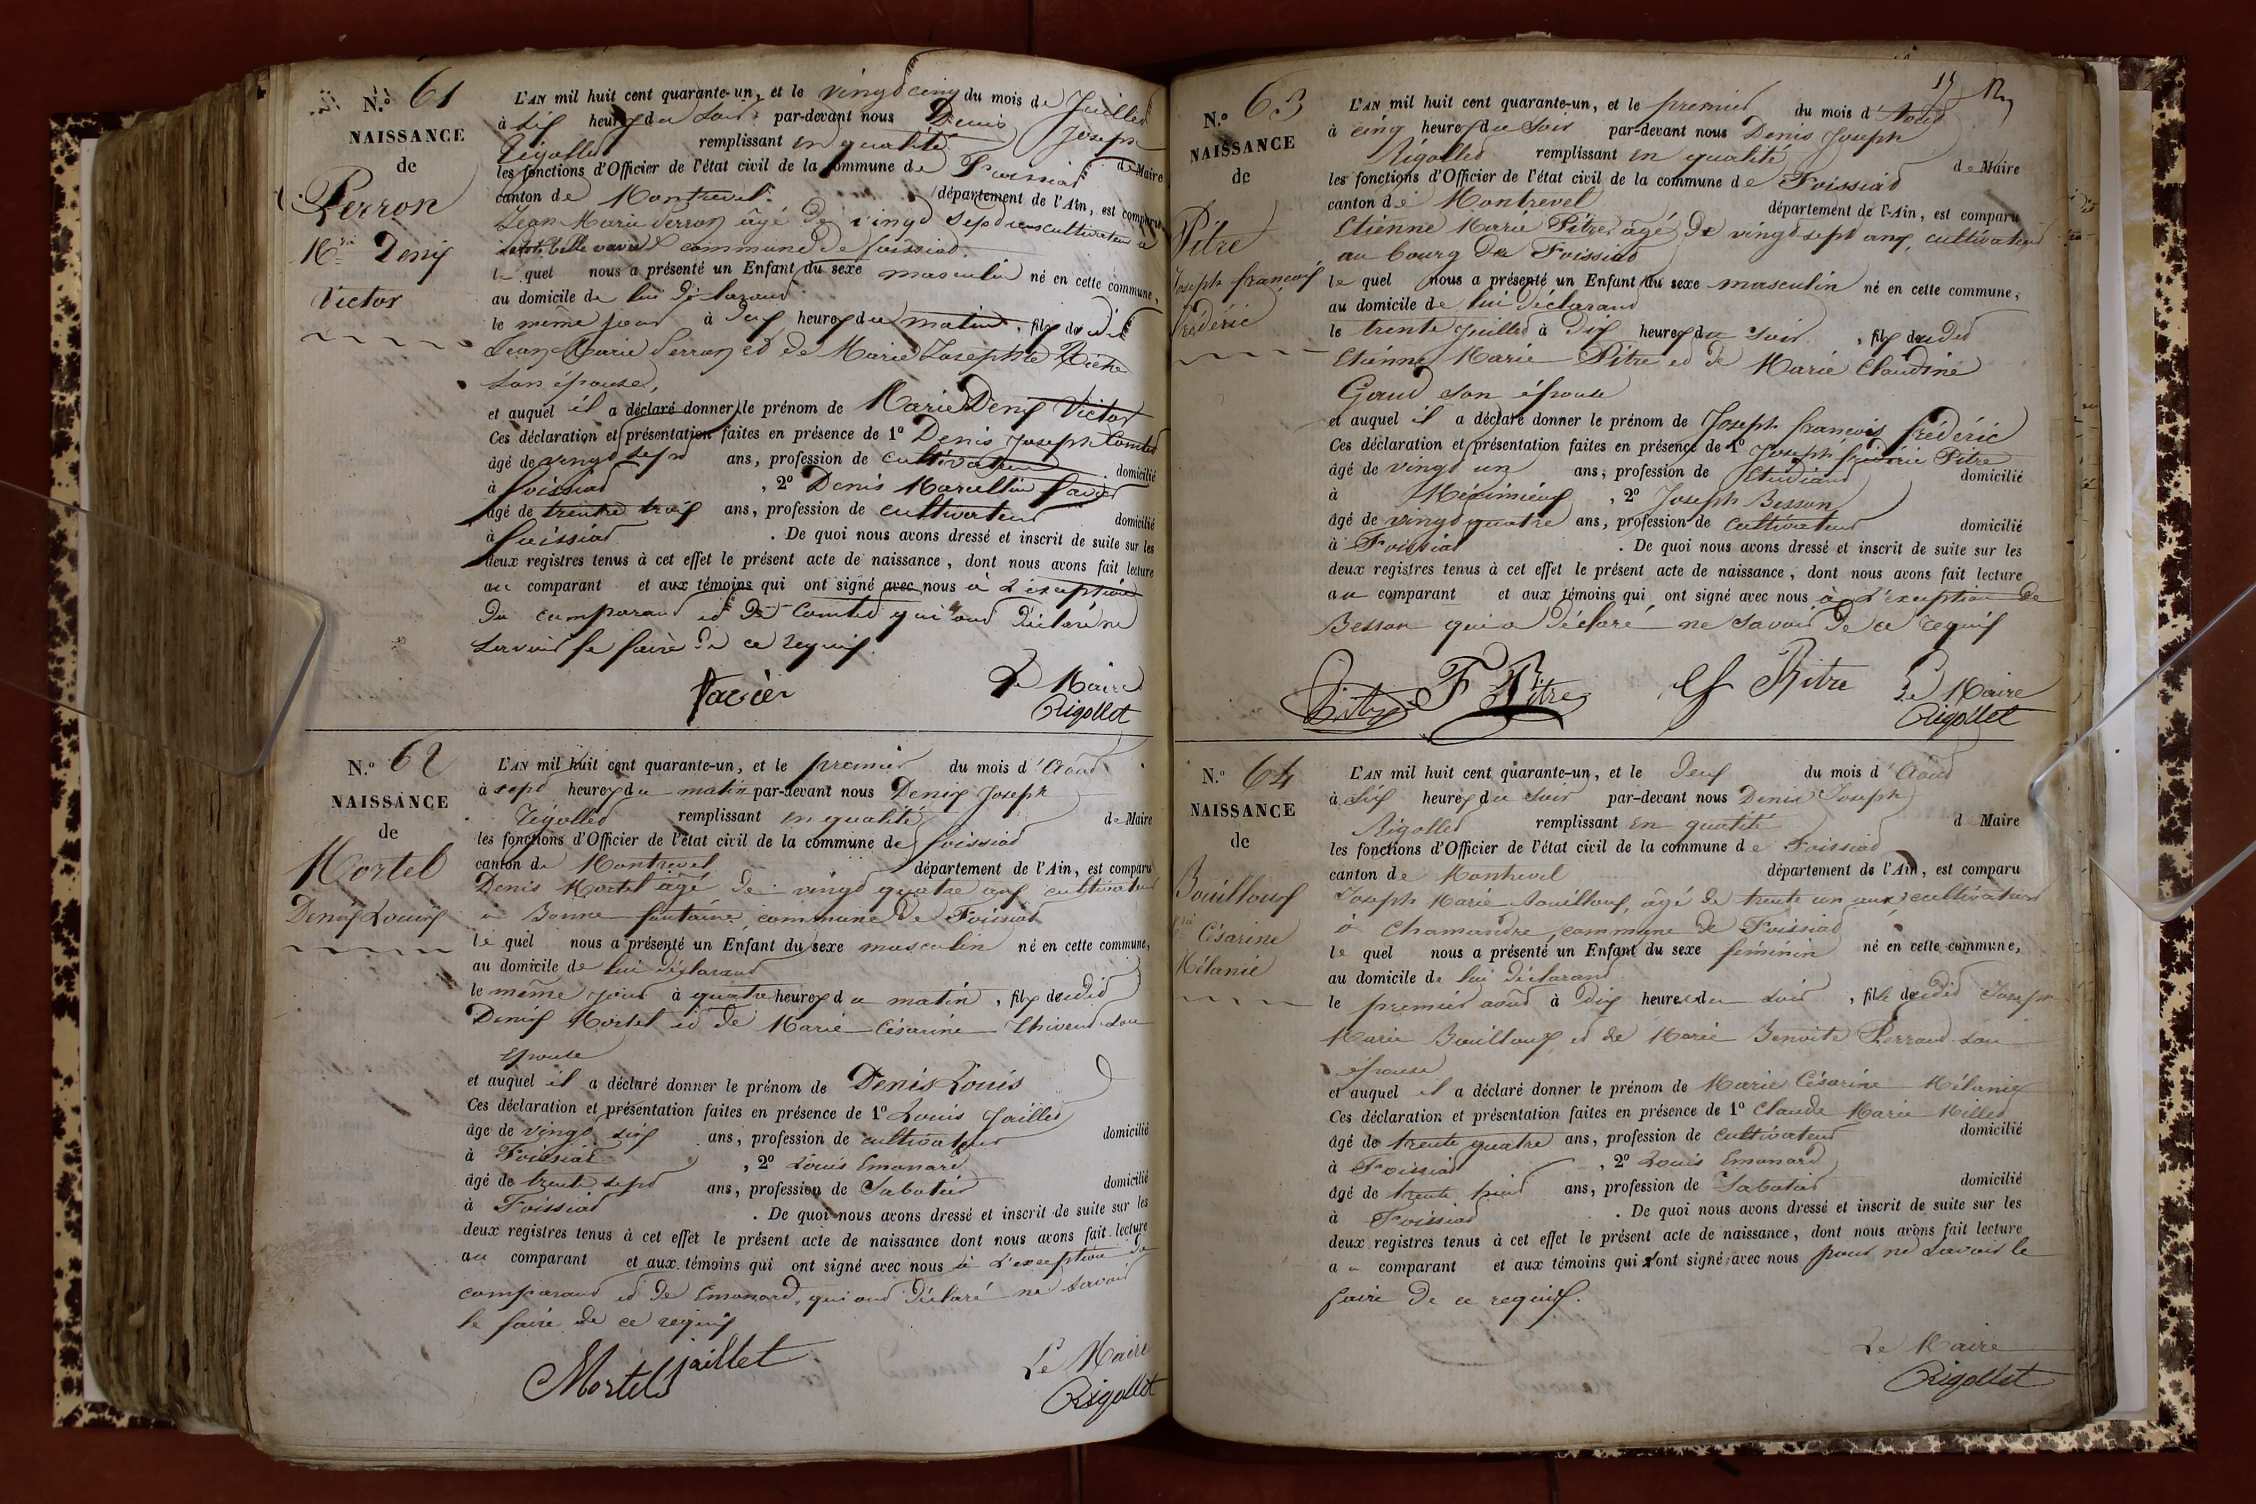 N.º 61
NAISSANCE
de
Perron
M.rie Denis
Victor
L'AN mil huit cent quarante-un, et le vingt cinq du mois de Juillet
à six heures du soir par-devant nous Denis Joseph
Rigollet remplissant en qualité de Maire
les fonctions d'Officier de l'état civil de la commune de Foissiat
canton de Montrevel département de l'Ain, est comparu
Jean Marie Perron âgé de vingt sept ans cultivateur à
commune de foissiat
le quel nous a présenté un Enfant du sexe masculin né en cette commune,
au domicile de lui déclarant
le même jour à heures du matin, fils dudit
Jean Marie Perron et de Marie Josephte
son épouse,
et auquel il a déclaré donner le prénom de Marie Denis Victor
Ces déclaration et présentation faites en présence de 1º Denis Joseph Comtet
âgé de vingt sept ans, profession de cultivateur domicilié
à foissiat, 2º Denis Marcellin favier
âgé de trente trois ans, profession de cultivateur domicilié
à foissiat. De quoi nous avons dressé et inscrit de suite sur les
deux registres tenus à cet effet le présent acte de naissance, dont nous avons fait lecture
au comparant et aux témoins qui ont signé avec nous à l'exception
du comparant et de Comtet qui ont déclaré ne
savoir le faire de ce requis.
favier
Le Maire
Rigollet
N.º 62
NAISSANCE
de
Mortel
Denis Louis
L'AN mil huit cent quarante-un, et le premier du mois d'Août
à sept heures du matin par-devant nous Denis Joseph
Rigollet remplissant en qualité de Maire
les fonctions d'Officier de l'état civil de la commune de foissiat
canton de Montrevel département de l'Ain, est comparu
Denis Mortel âgé de vingt quatre ans cultivateur
à Bonne fontaine commune de Foissiat
le quel nous a présenté un Enfant du sexe masculin né en cette commune,
au domicile de lui déclarant
le même jour à quatre heures du matin, fils dudit
Denis Mortel et de Marie Césarine Thivend son
épouse
et auquel il a déclaré donner le prénom de Denis Louis
Ces déclaration et présentation faites en présence de 1º Louis Jaillet
âgé de vingt six ans, profession de cultivateur domicilié
à Foissiat, 2º Louis Emonard
âgé de trente sept ans, profession de Sabotier domicilié
à Foissiat. De quoi nous avons dressé et inscrit de suite sur les
deux registres tenus à cet effet le présent acte de naissance dont nous avons fait lecture
au comparant et aux témoins qui ont signé avec nous à l'exception du
comparant et de Emonard, qui ont déclaré ne savoir
le faire de ce requis
Mortel jaillet
Le Maire
Rigollet
N.º 63
NAISSANCE
de
Pitre
Joseph françois
frédéric
L'AN mil huit cent quarante-un, et le premier du mois d'Août
à cinq heures du soir par-devant nous Denis Joseph
Rigollet remplissant en qualité de Maire
les fonctions d'Officier de l'état civil de la commune de Foissiat
canton de Montrevel département de l'Ain, est comparu
Etienne Marie Pitre âgé de vingt sept ans, cultivateur
au bourg de Foissiat
le quel nous a présenté un Enfant du sexe masculin né en cette commune,
au domicile de lui déclarant
le trente Juillet à dix heures du soir, fils dudit
Etienne Marie Pitre et de Marie Claudine
Gaud son épouse
et auquel il a déclaré donner le prénom de Joseph françois frédéric
Ces déclaration et présentation faites en présence de 1º Joseph frédéric Pitre
âgé de vingt un ans, profession de Etudiant domicilié
à Meximieux, 2º Joseph Besson
âgé de vingt quatre ans, profession de cultivateur domicilié
à Foissiat. De quoi nous avons dressé et inscrit de suite sur les
deux registres tenus à cet effet le présent acte de naissance, dont nous avons fait lecture
au comparant et aux témoins qui ont signé avec nous à l'exception de
Besson qui a déclaré ne savoir de ce requis
Pitre F Pitre Pitre
Le Maire
Rigollet
N.º 64
NAISSANCE
de
Bouilloux
M.rie Césarine
Mélanie
L'AN mil huit cent quarante-un, et le deux du mois d'Août
à six heures du soir par-devant nous Denis Joseph
Rigollet remplissant en qualité d Maire
les fonctions d'Officier de l'état civil de la commune de Foissiat
canton de Montrevel département de l'Ain, est comparu
Joseph Marie Bouilloux, âgé de trente un ans cultivateur
à Chamandre commune de Foissiat
le quel nous a présenté un Enfant du sexe féminin né en cette commune,
au domicile de lui déclarant
le premier août à dix heures du soir, fille dudit Joseph
Marie Bouilloux et de Marie Benoite Perraud son
épouse
et auquel il a déclaré donner le prénom de Marie Césarine Mélanie
Ces déclaration et présentation faites en présence de 1º Claude Marie Millet
âgé de trente quatre ans, profession de cultivateur domicilié
à Foissiat, 2º Louis Emonard
âgé de trente ans, profession de Sabotier domicilié
à Foissiat. De quoi nous avons dressé et inscrit de suite sur les
deux registres tenus à cet effet le présent acte de naissance, dont nous avons fait lecture
au comparant et aux témoins qui n'ont signé avec nous pour ne savoir le
faire de ce requis.
Le Maire
Rigollet